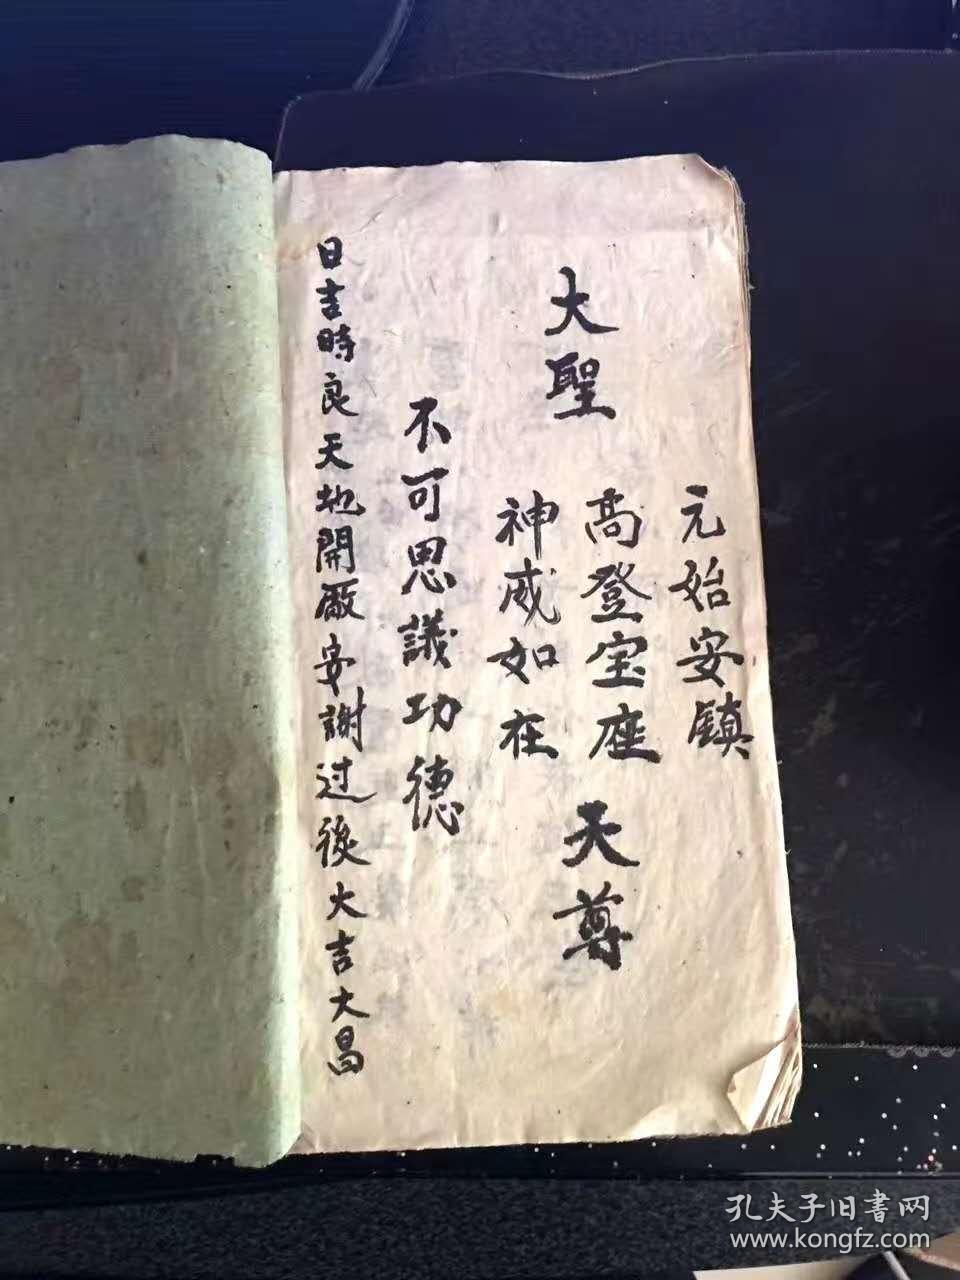 元始安鎮
大聖 高登宝座 天尊
神威如在
不可思議功德
日吉時良天地開厰安謝过後大吉大昌
孔夫子旧書网
www.kongfz.com